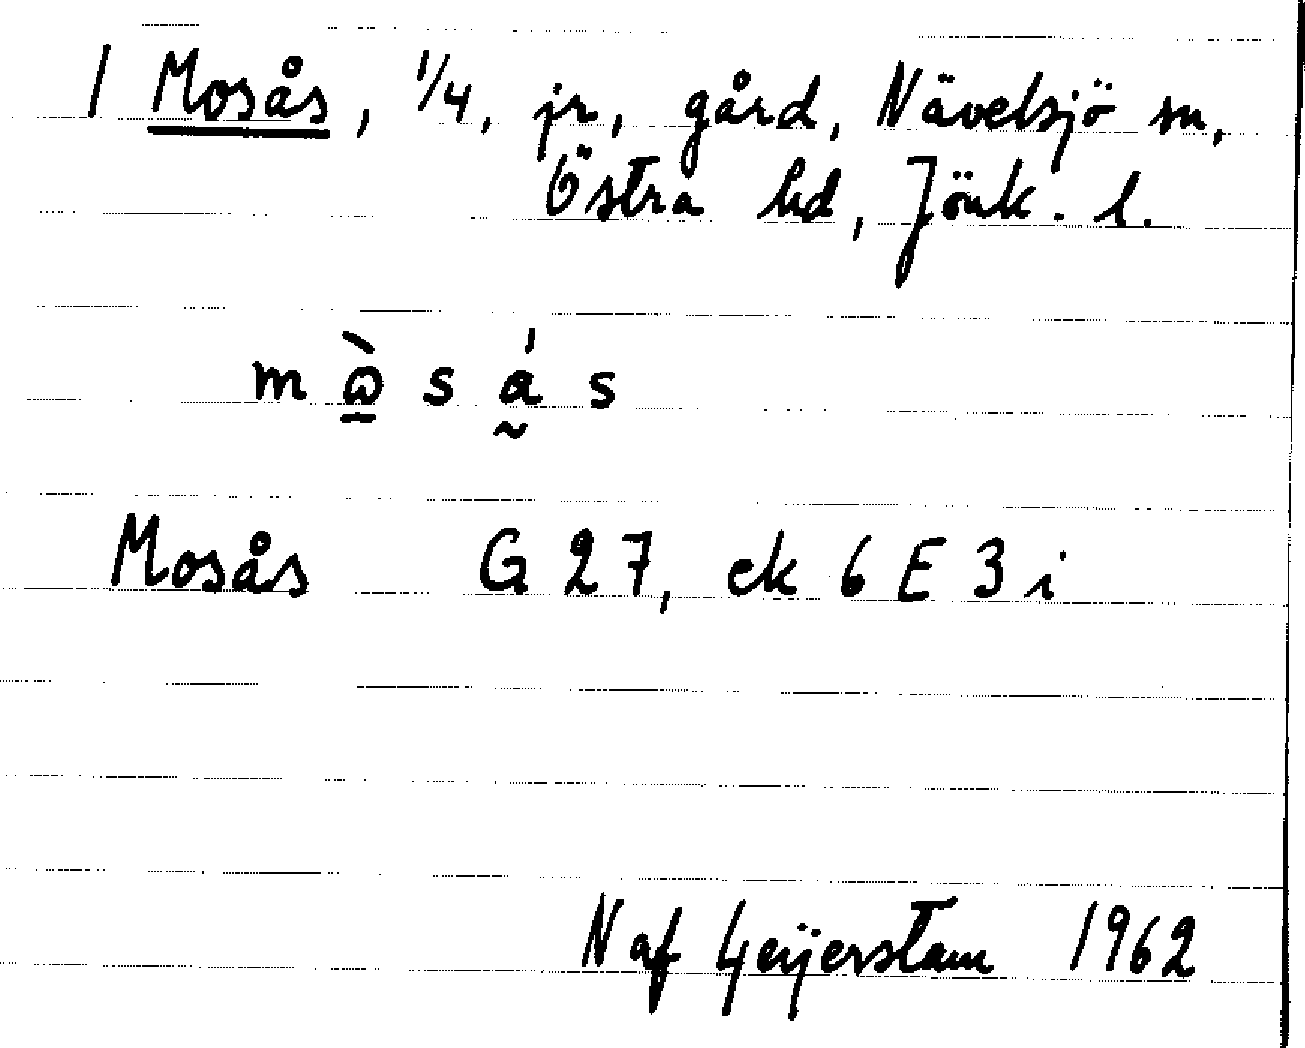 1 Mosås, 1/4, jr, gård, Nävelsjö sn,
Östra hd, Jönk. l.
m ɷ̠̀ s á̰ s
Mosås G 27, ek 6 E 3 i
N af Geijerstam 1962